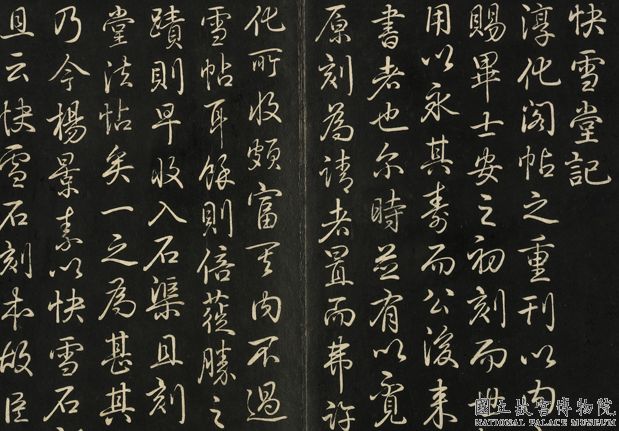 快雪堂記
淳化閣帖之重刊以內
賜畢士安之初刻而毋
用以永其壽而公後來
書者也尔時並有以覓
原刻為請者置而弗許
化所收頗富其內不過
雪帖耳餘則倍蓰勝之
蹟則早收入石渠且刻
堂法帖矣一之為甚其
乃今楊景素以快雪石
且云快雪石刻本故臣
國立故宮博物院
NATIONAL PALACE MUSEUM